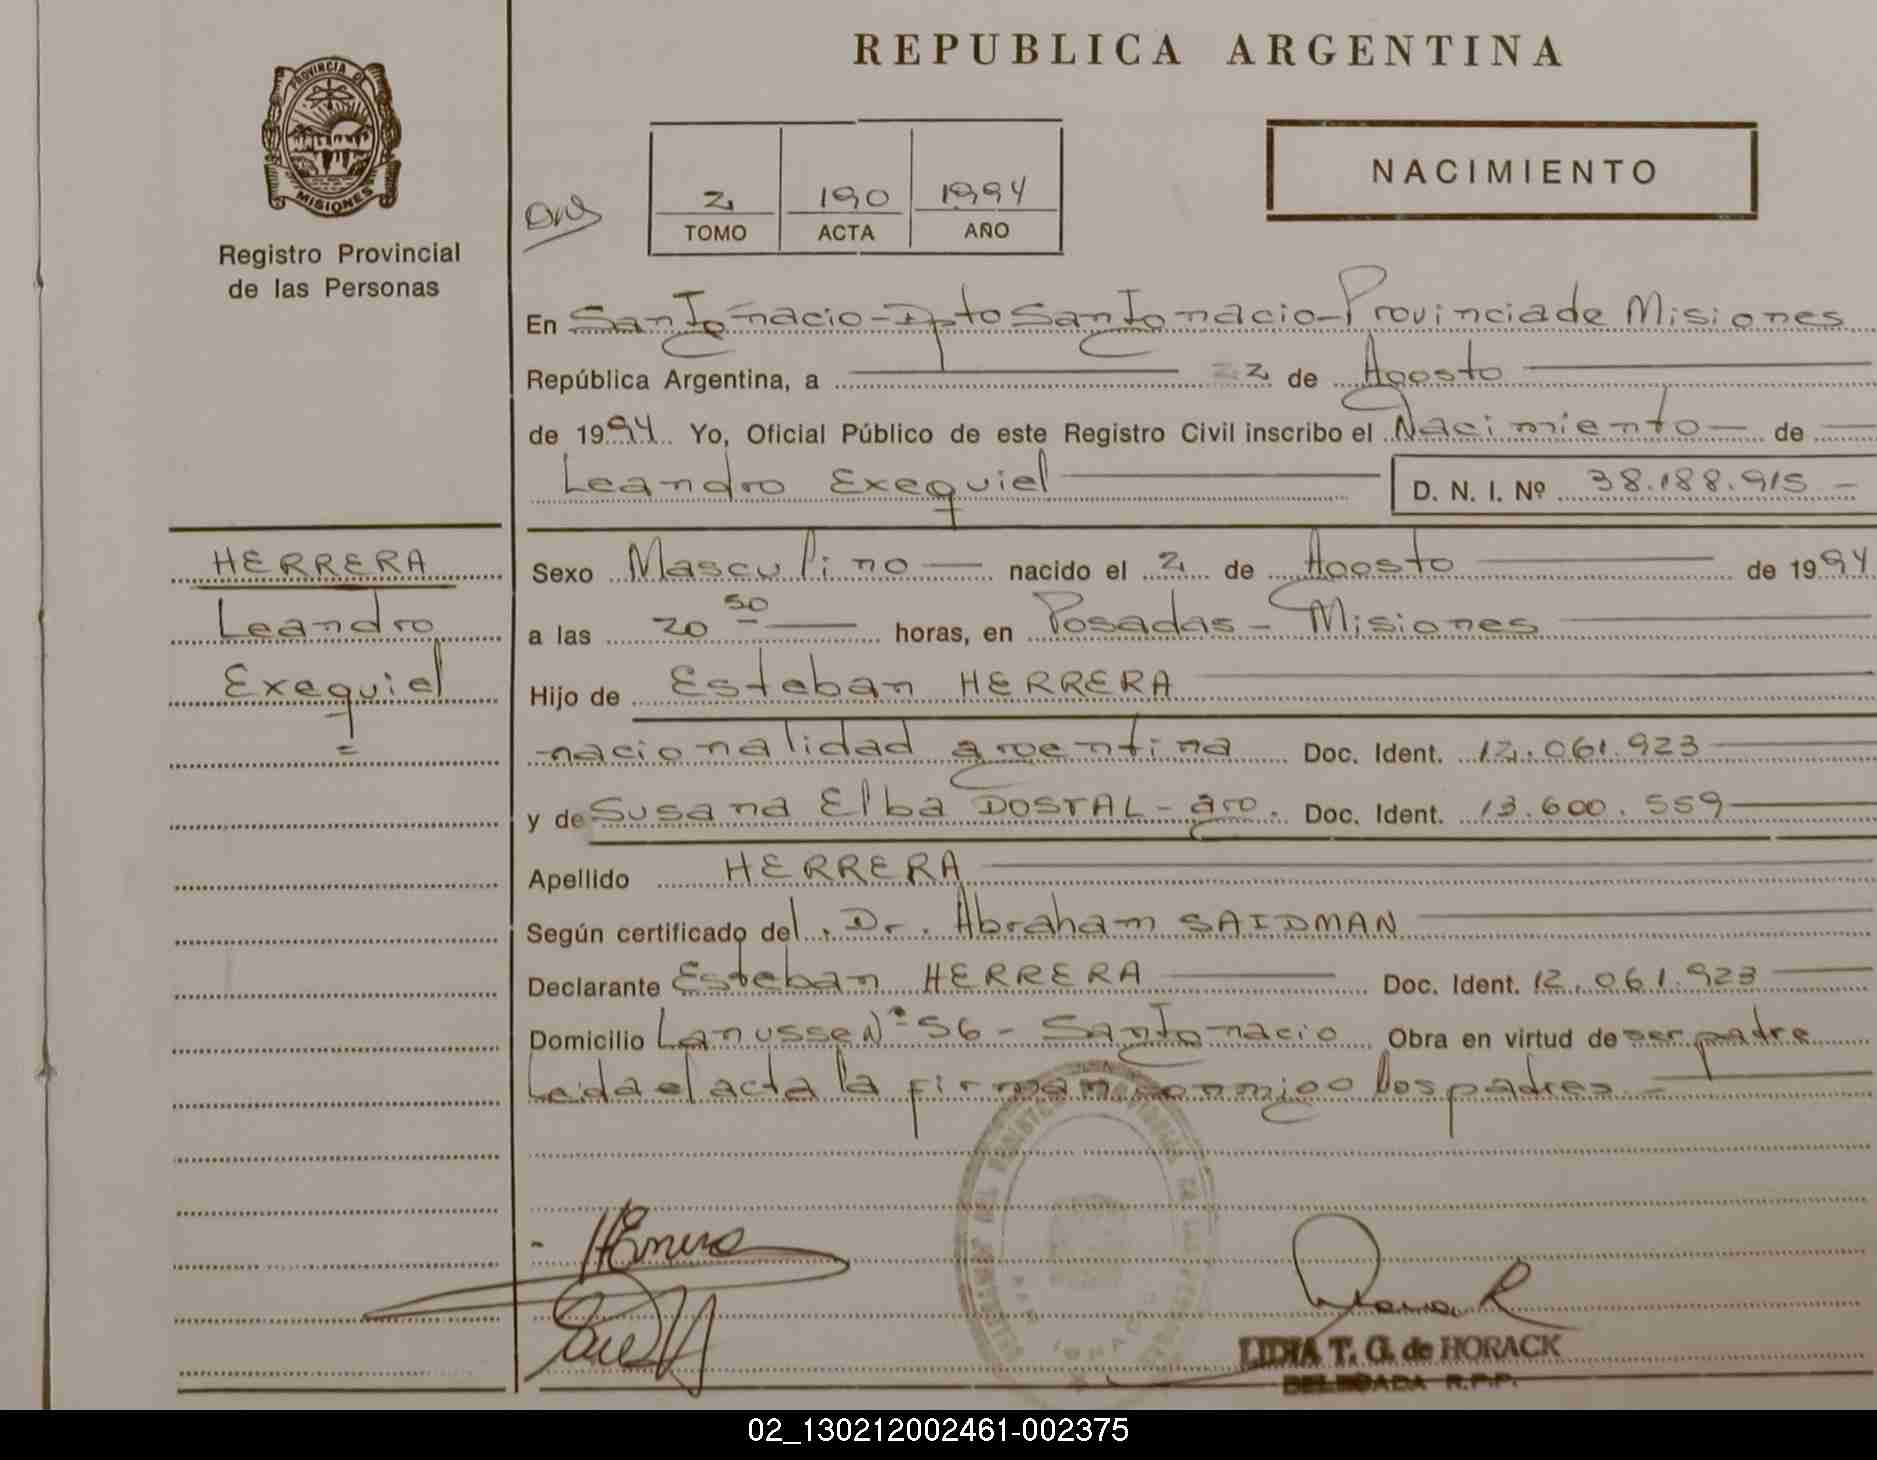 REPUBLICA ARGENTINA
PROVINCIA DE
MISIONES
Registro Provincial
de las Personas
2 190 1994
TOMO ACTA AÑO
NACIMIENTO
En San Ignacio - Dpto San Ignacio - Provincia de Misiones
República Argentina, a 22 de Agosto
de 1994 Yo, Oficial Público de este Registro Civil inscribo el Nacimiento de
Leandro Exequiel D. N. I. Nº 38.188.915 -
HERRERA
Leandro
Exequiel
Sexo Masculino nacido el 2 de Agosto de 1994
a las 20 50 horas, en Posadas - Misiones
Hijo de Esteban HERRERA
nacionalidad argentina Doc. Ident. 12.061.923
y de Susana Elba DOSTAL - arg. Doc. Ident. 13.600.559
Apellido HERRERA
Según certificado del Dr. Abraham SAIDMAN
Declarante Esteban HERRERA Doc. Ident. 12.061.923
Domicilio Lanusse Nº 56 - San Ignacio Obra en virtud de ser padre
Leida el acta la firman conmigo los padres. -
LIDIA T. G. de HORACK
DELEGADA R.P.P.
02_130212002461-002375